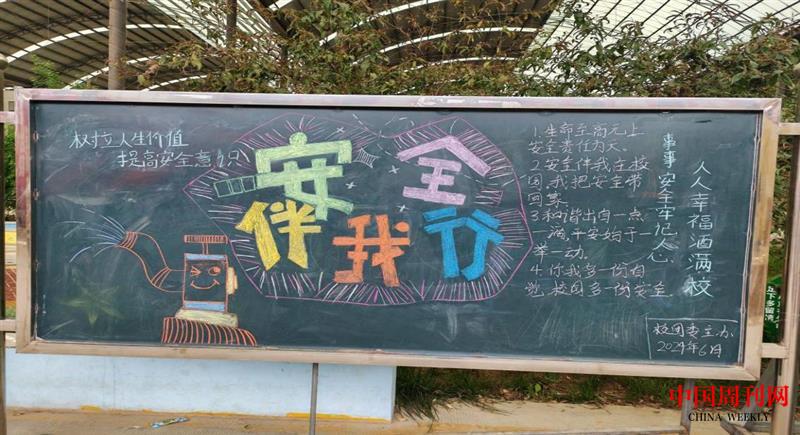 树立人生价值
提高安全意识
安全
伴我行
1.生命至高无上
安全责任为天。
2.安全伴我在校
园,我把安全带
回家
3.和谐出自一点
一滴,平安始于一
举一动.
4.你我多一份自
觉,校园多一份安全.
事事安全牢记人心
人人幸福洒满校
校团委主办
2024年6月
中国周刊网
CHINA WEEKLY